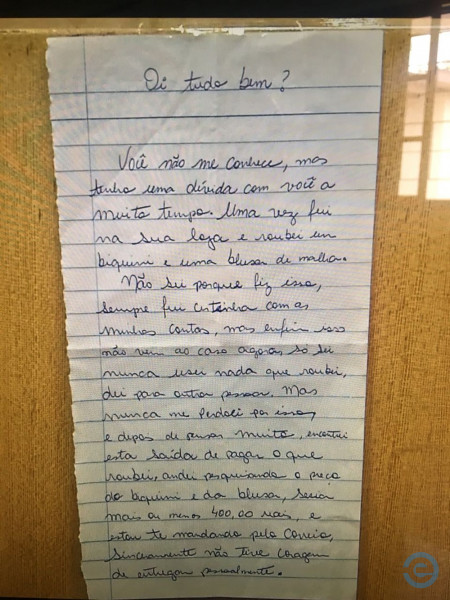 Oi tudo bem?
Você não me conhece, mas
tenho uma dívida com você a
muito tempo. Uma vez fui
na sua loja e roubei um
biquini e uma blusa de malha.
Não sei porque fiz isso,
sempre fui certinha com as
minhas contas, mas enfim isso
não vem ao caso agora, só sei
nunca usei nada que roubei,
dei para outra pessoa. Mas
nunca me perdoei por isso,
e depois de pensar muito, encontrei
esta saída de pagar o que
roubei, andei pesquisando o preço
do biquini e da blusa, seria
mais ou menos 400,00 reais, e
estou te mandando pelo Correio,
sinceramente não tive coragem
de entregar pessoalmente.